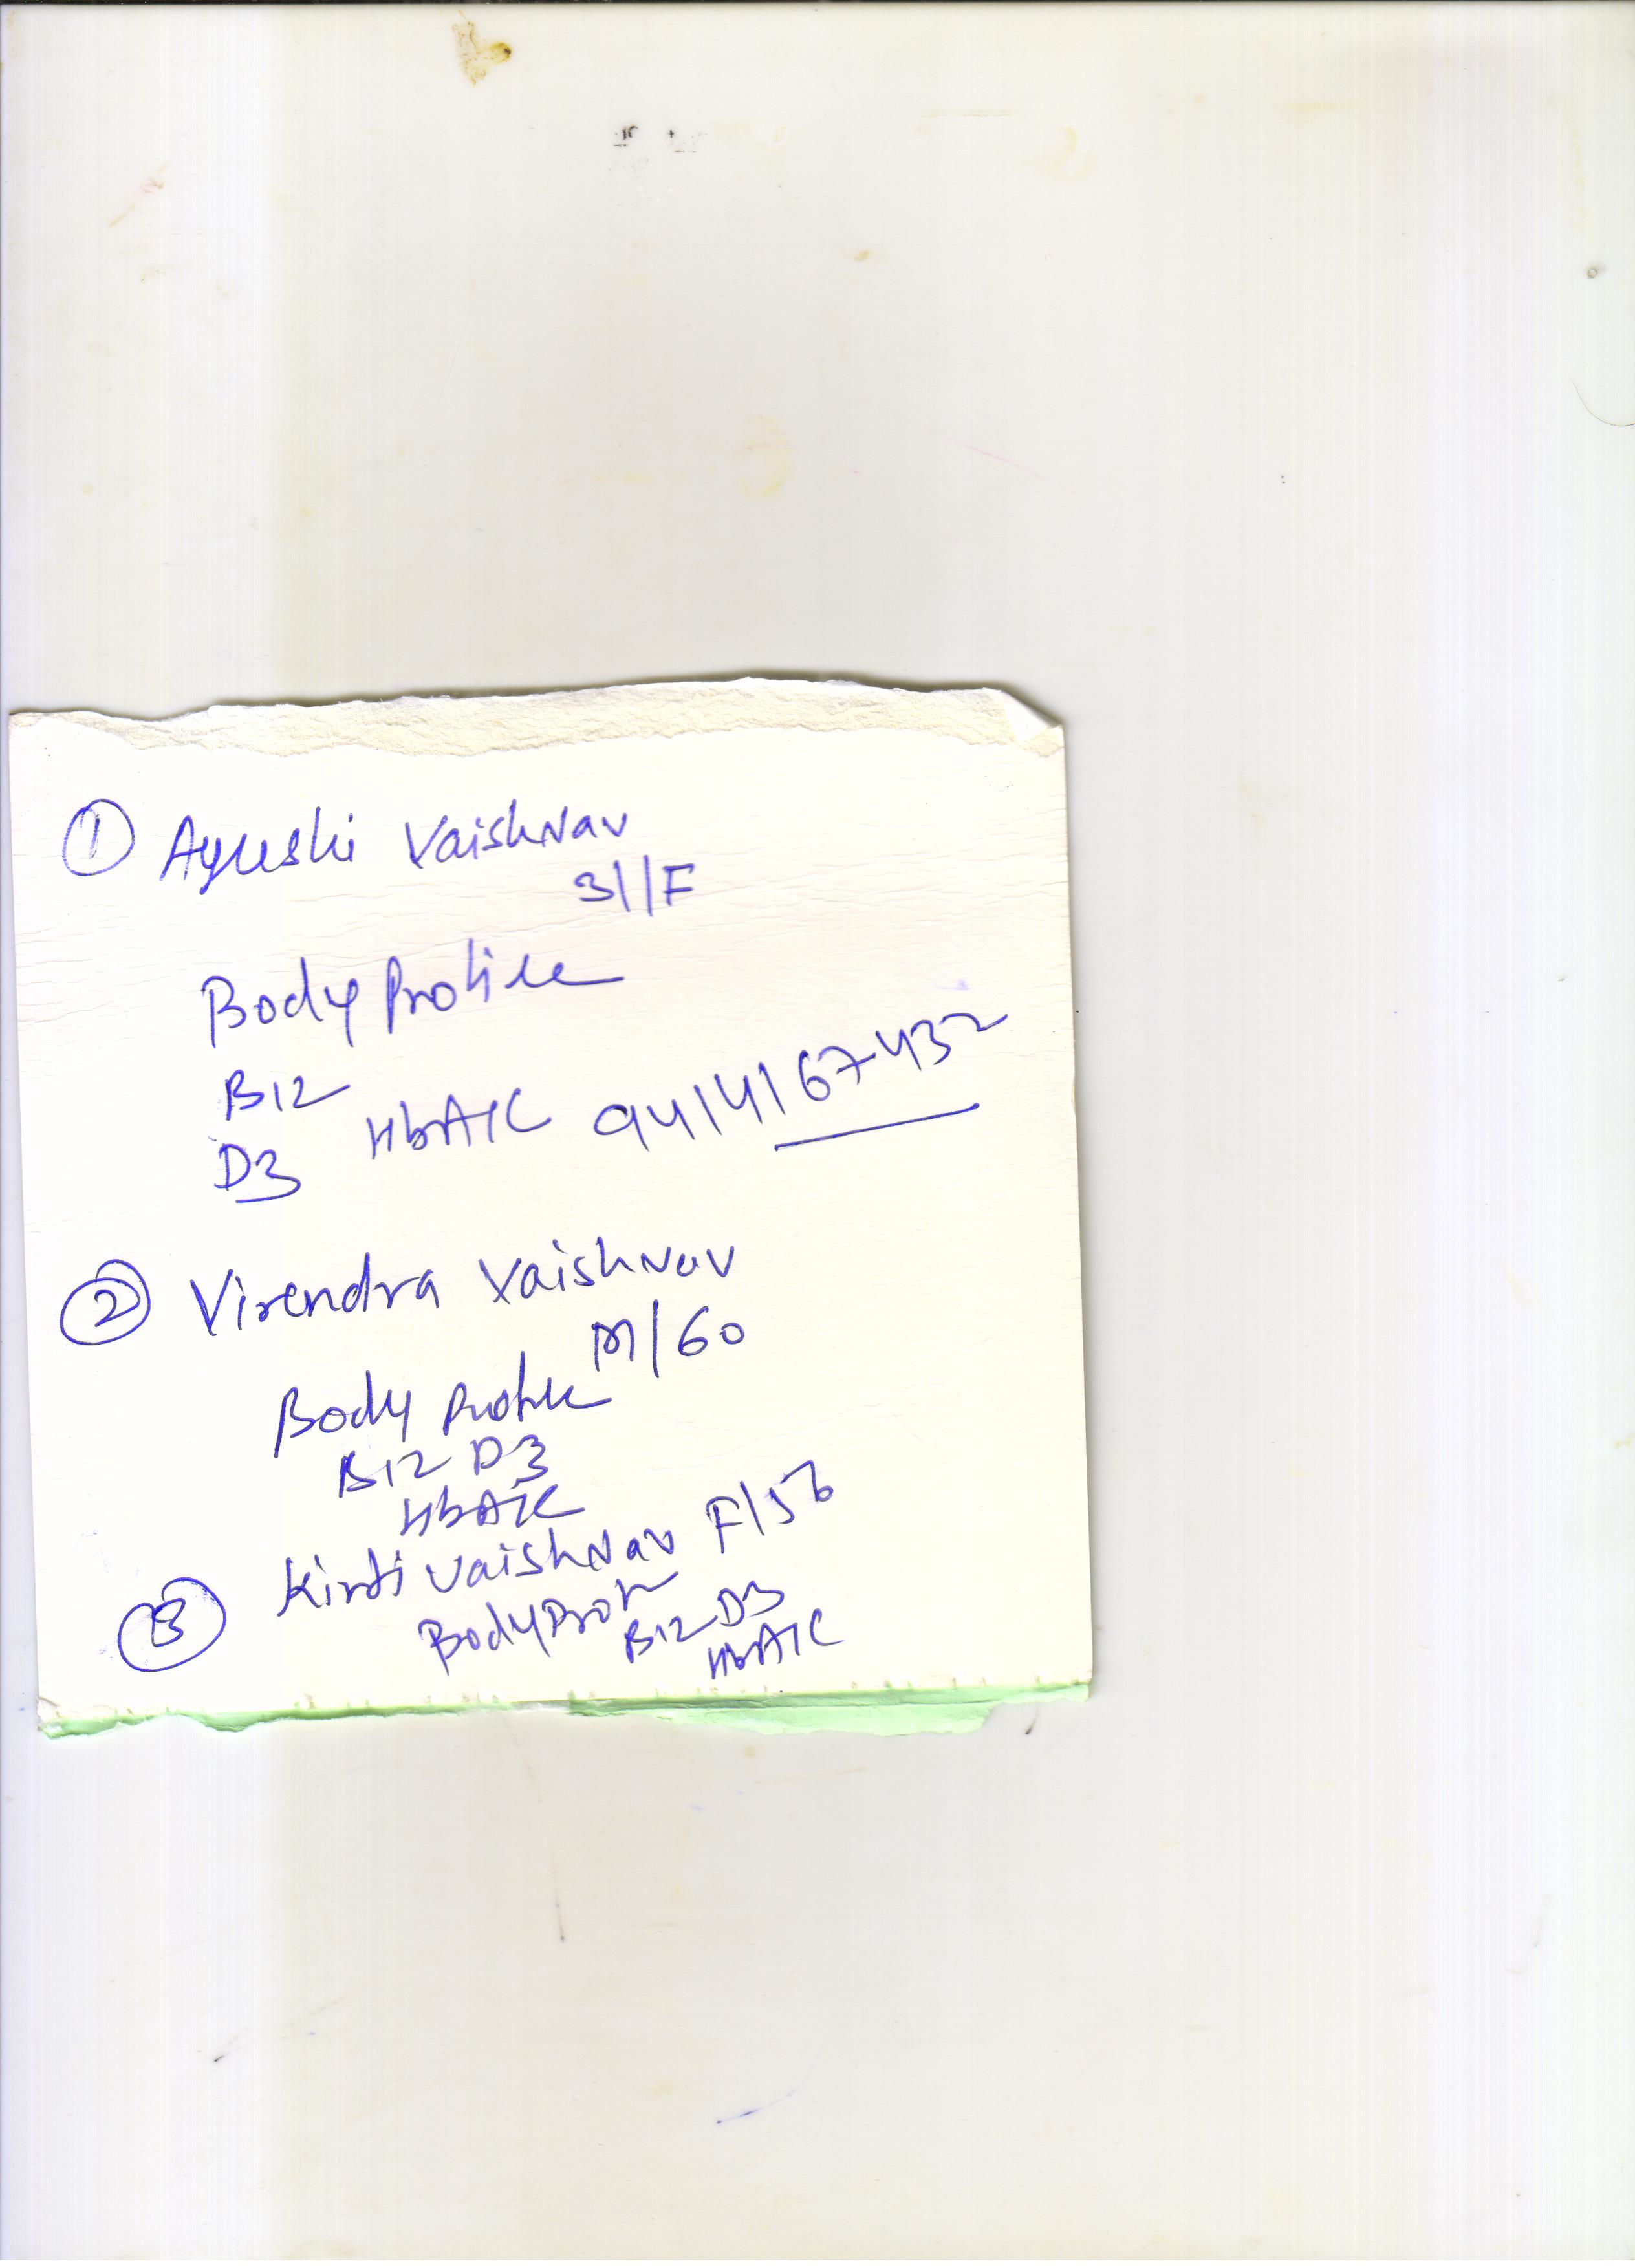 ① Ayushi Vaishnav
31/F
Body Profile
B12
D3 HbA1C 9414167432
② Virendra Vaishnav
M/60
Body Profile
B12 D3
HbA1C
③ Kirti Vaishnav F/56
Body Prof
B12 D3
HbA1C